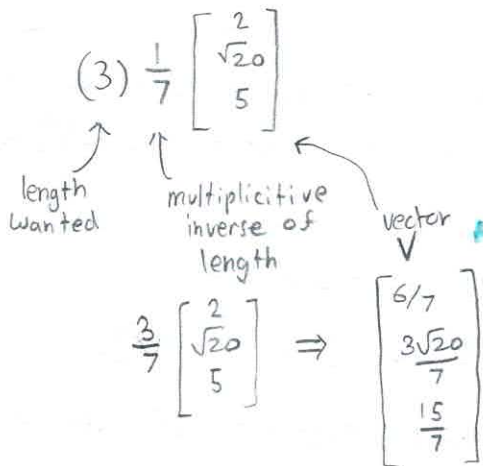 2
(3) 1/7 [ √20 ]
5
length wanted
multiplicitive inverse of length
vector
V
2
3/7 [ √20 ] ⇒
5
6/7
3√20/7
15/7